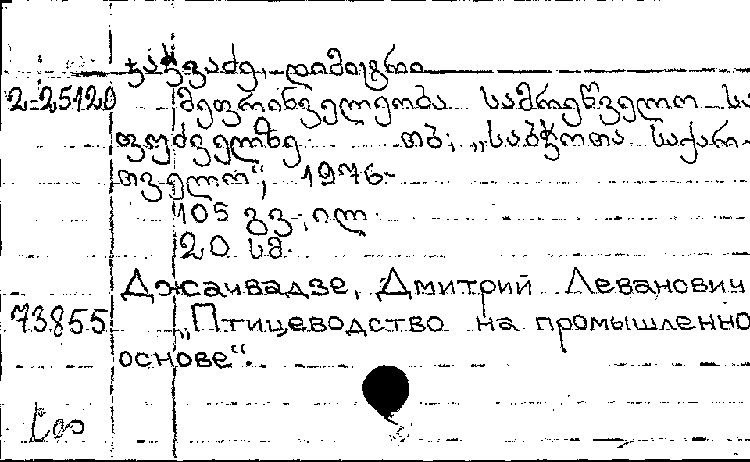 ჯაჭვაძე, დიმიტრი
2-25120 მეფრინველეობა სამრეწველო სა
ფუძველზე თბ., „საბჭოთა საქარ-
თველო“, 1976-
105 გვ.; ილ.
20 სმ.
Джачвадзе, Дмитрий Леванович
73855 „Птицеводство на промышленно
основе“.